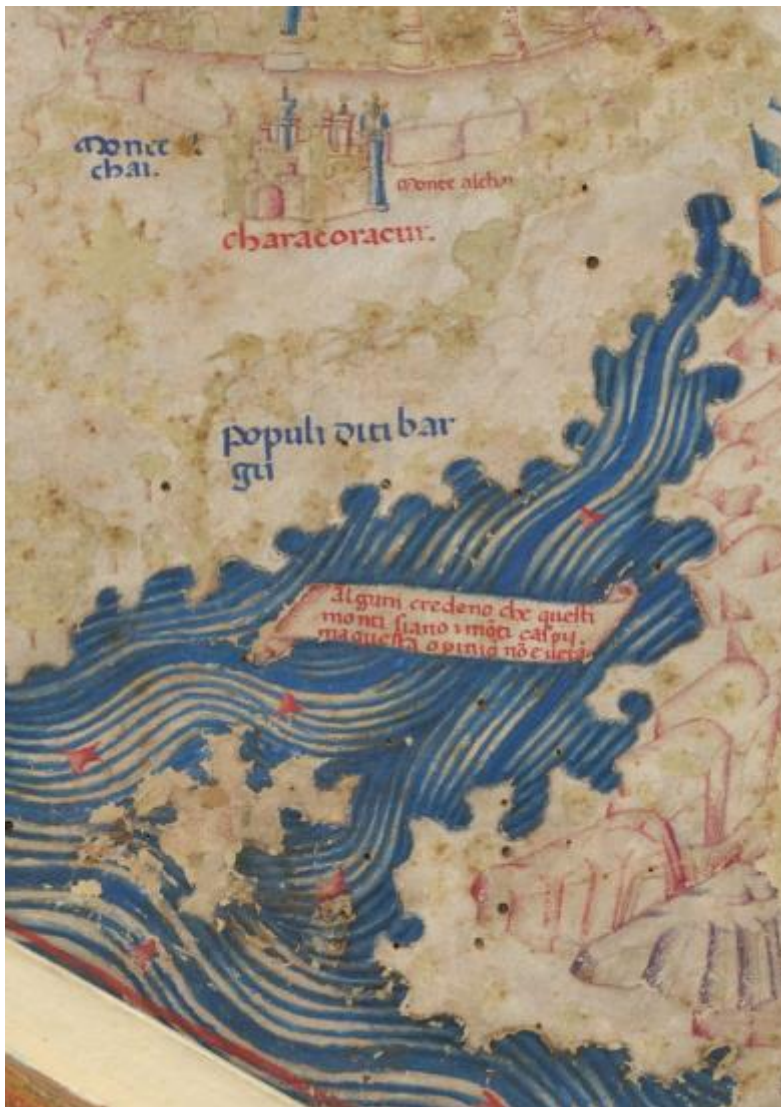 monte
chai.
monte alchai
characoracur.
populi diti bar
gu
Alguni credeno che questi
monti siano i mōti caspij.
ma questa opinio nō e uera